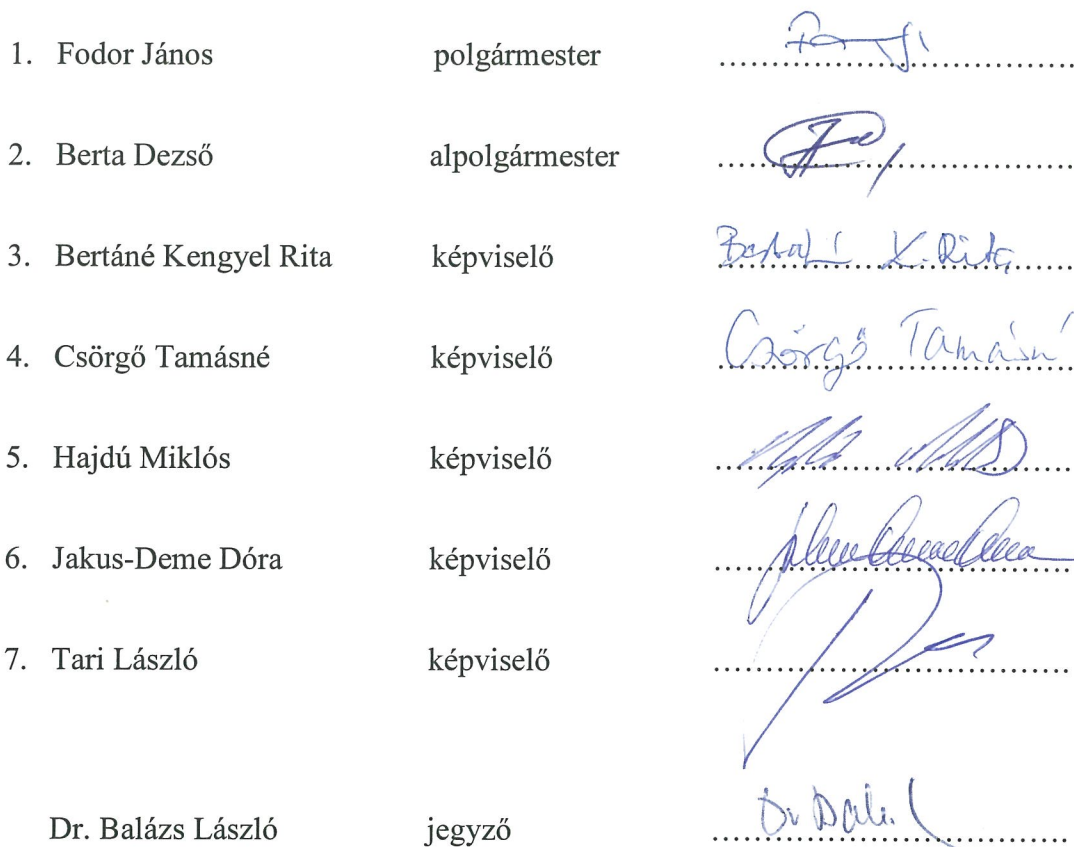 1. Fodor János polgármester
2. Berta Dezső alpolgármester
3. Bertáné Kengyel Rita képviselő K. Rita
4. Csörgő Tamásné képviselő Csörgő Tamásn
5. Hajdú Miklós képviselő
6. Jakus-Deme Dóra képviselő
7. Tari László képviselő
Dr. Balázs László jegyző Dr